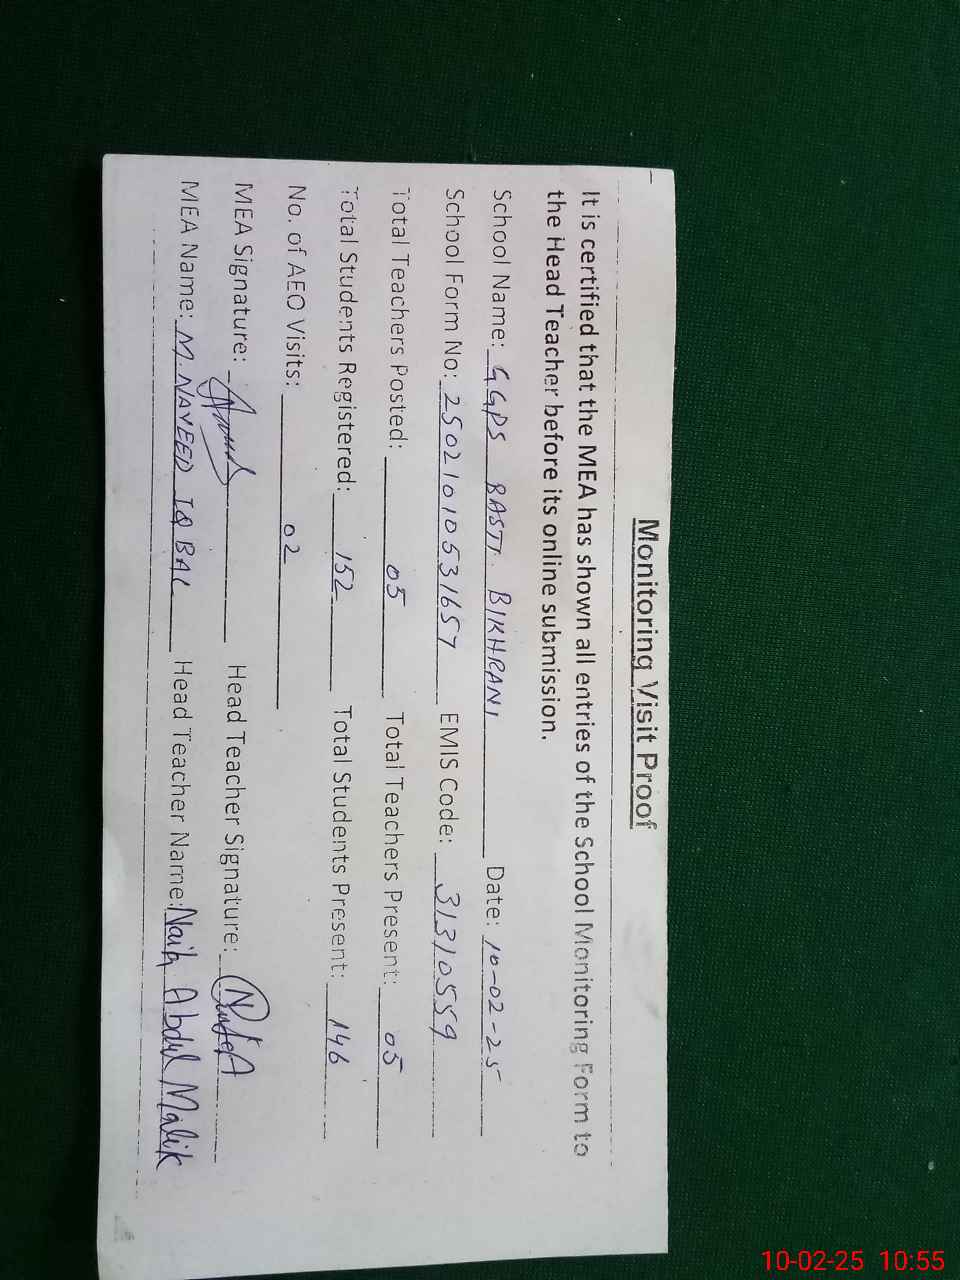 Monitoring Visit Proof
It is certified that the MEA has shown all entries of the School Monitoring Form to
the Head Teacher before its online submission.
School Name: GGPS BASTI BIKHRANI Date: 10-02-25
School Form No: 25021010531657 EMIS Code: 31310559
Total Teachers Posted: 05 Total Teachers Present: 05
Total Students Registered: 152 Total Students Present: 146
No. of AEO Visits: 02
MEA Signature: Head Teacher Signature:
MEA Name: M. NAVEED IQBAL Head Teacher Name: Abdul Malik
10-02-25 10:55